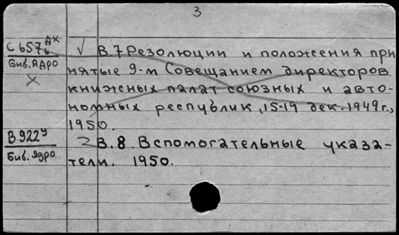 3
С 657 дк
6
Биб. Ядро
√ В.7 Резолюции и положения при
нятые 9-м Совещанием директоров
книжных палат союзных и авто-
номных республик, 15-19 дек. 1949г.,
1950.
В 922 у
Биб. Ядро.
2 В.8. Вспомогательные указа-
тели. 1950.